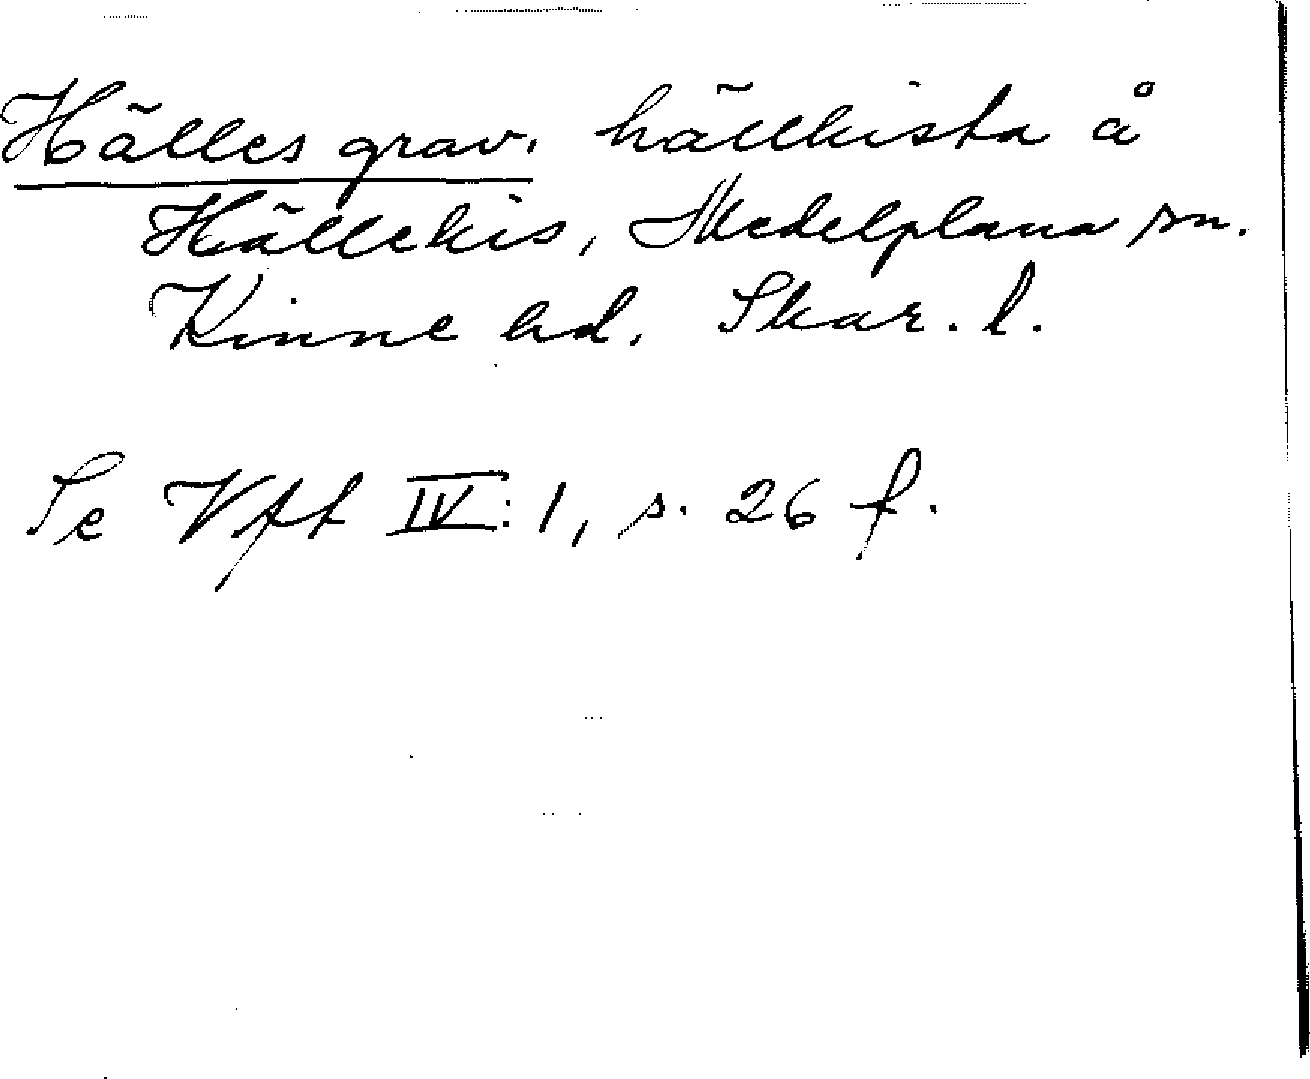 Hälles grav. hällkista å
Hällekis, Medelplana sn.
Kinne hd. Skar. l.
Se Vft IV: 1, s. 26 f.